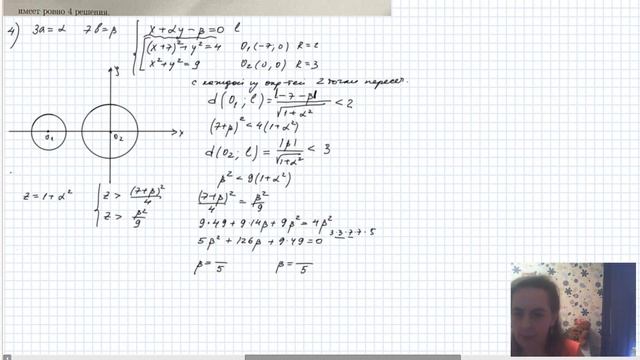 имеет ровно 4 решения.
4) 3a = α 7b = β { x + αy - β = 0 l
(x+7)² + y² = 4 O₁(-7; 0) R = 2
x² + y² = 9 O₂(0; 0) R = 3
с каждой из окр-тей 2 точки пересеч.
d(O₁; l) = |-7-β| / √(1+α²) < 2
(7+β)² < 4(1+α²)
d(O₂; l) = |β| / √(1+α²) < 3
β² < 9(1+α²)
y
x
O₁
O₂
z = 1+α² { z > (7+β)²/4
z > β²/9
(7+β)²/4 = β²/9
9·49 + 9·14β + 9β² = 4β²
3·3·7·7·5
5β² + 126β + 9·49 = 0
β = —/5 β = —/5